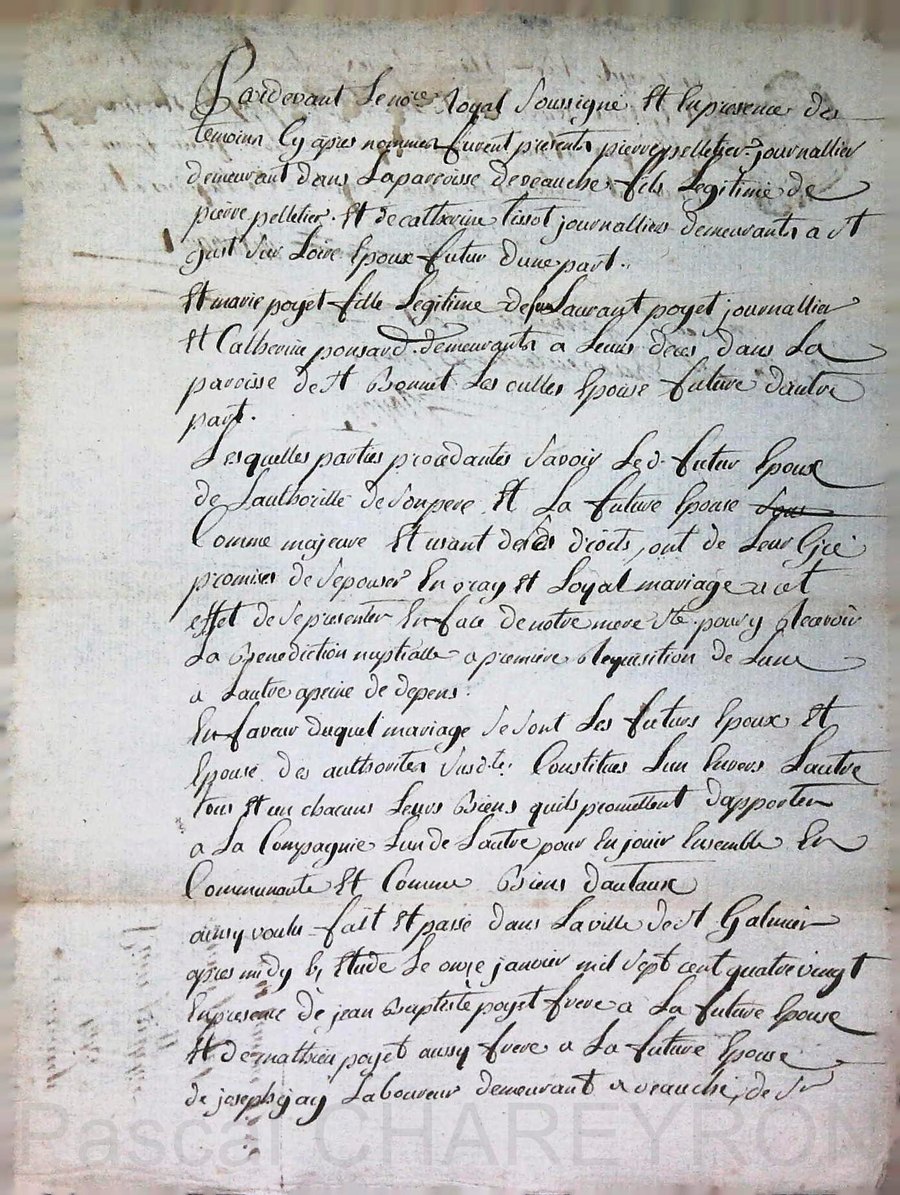 Pardevant Le no.re Royal Soussigné Et En presence des
temoins Cy apres nommés furent presents pierre pelletier journallier
demeurant dans La paroisse de veauche fils Legitime de
pierre pelletier Et de catherine tissot journalliers demeurants a st
just sur Loire Epoux futur d'une part..
Et marie poyet fille Legitime de Laurant poyet journallier
Et Catherine ponsard demeurants a Leurs deces dans La
paroisse de st Bonnet Les oulles Epouse future dautre
part.
Lesquelles parties procedantes Savoir Le d. futur Epoux
de Lauthorité de son pere Et La future Epouse
Comme majeure Et usant de ses droits, ont de Leur Gré
promises de s'epouser En vray Et Loyal mariage a cet
effet de se presenter En face de notre mere Ste pour y Recevoir
La Benediction nuptialle a premiere Requisition de Lune
a Lautre a peine de depens.
En faveur duquel mariage se sont Les futurs Epoux Et
Epouse des authorités susd.tes Constitués Lun Envers Lautre
tous Et un chacuns Leurs Biens quils promettent dapporter
a La Compagnie Lun de Lautre pour En jouir Ensemble En
Communauté Et Comme Biens dautaux
ainsy voulu fait Et passé dans La ville de st Galmier
apres midy Et Etude Le onze janvier mil sept cent quatre vingt
En presence de jean Baptiste poyet frere a La future Epouse
Et de mathieu poyet aussy frere a La future Epouse
de joseph jay Laboureur demeurant a veauche, de Sr
Pascal CHAREYRON